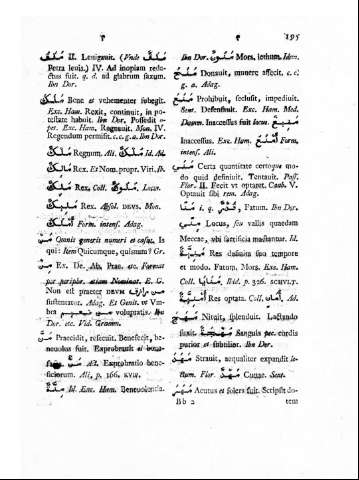 م م 195
ملف II. Lenigauit. (Vnde ملف
Petra leuis.) IV. Ad inopiam reda-
ctus fuit. q. d. ad glabrum saxum.
Ibn Dor.
ملك Bene et vehementer subegit.
Exc. Ham. Rexit, continuit, in po-
testate habuit. Ibn Dor. Possedit o-
per. Exc. Ham. Regnauit. Mon. IV.
Regendum permisit. c. c. g. a. Ibn Dor.
ملك Regnum. Ali. ملك Id. Ad.
ملك Rex. Et Nom. propr. Viri. Ib.
ملك Rex. Coll. ملوك Locus.
ملك Rex. Absol. DEVS. Mon.
Form. intens. Adag.
من Quonis generis numeri et casus, Is
qui: item Quicumque, quisnam? Gr.
من Ex. De. Ab. Prae. etc. Format
per periphr. etiam Nominat. E. G.
Non est praeter DEVM من
sustentator. Adag. Et Genit. vt Vm-
bra من voluptatis. Ibn
Dor. etc. Vid. Gramm.
من Praecidit, resecuit. Benefecit, be-
neuolus fuit. Exprobrauit
Ad. Exprobratio bene-
ficiorum. Ali, p. 366.
Id. Exc. Ham. Beneuolentia.
Ibn Dor. منون Mors, lethum. Idem.
منح Donauit, munere affecit. c. c.
g. a. Adag.
منع Prohibuit, seclusit, impediuit.
Sent. Defensauit. Exc. Ham. Med.
منيع Inaccessus fuit locus.
Inaccessus. Exc. Ham. Form.
intens. Ali.
Certa quantitate certoque mo-
do quid definiuit. Tentauit. Pass.
Flor. II. Fecit vt optaret. Caab. V.
Optauit sibi rem. Adag.
i. q. Fatum. Ibn Dor.
منى Locus, seu vallis quaedam
Meccae, vbi sacrificia mactantur. Id.
منية Res definita suo tempore
et modo. Fatum, Mors. Exc. Ham.
Coll. Ibid. p. 326.
امنية Res optata. Coll. Ad.
Nituit, splenduit. Lactando
suxit. Sanguis pec. cordis
purior et subtilior. Ibn Dor.
مهد Strauit, aequaliter expandit le-
ctum. Flor. مهد Cunae. Sent.
مهر Acutus et solers fuit. Scripsit do-
Bb 2 tem